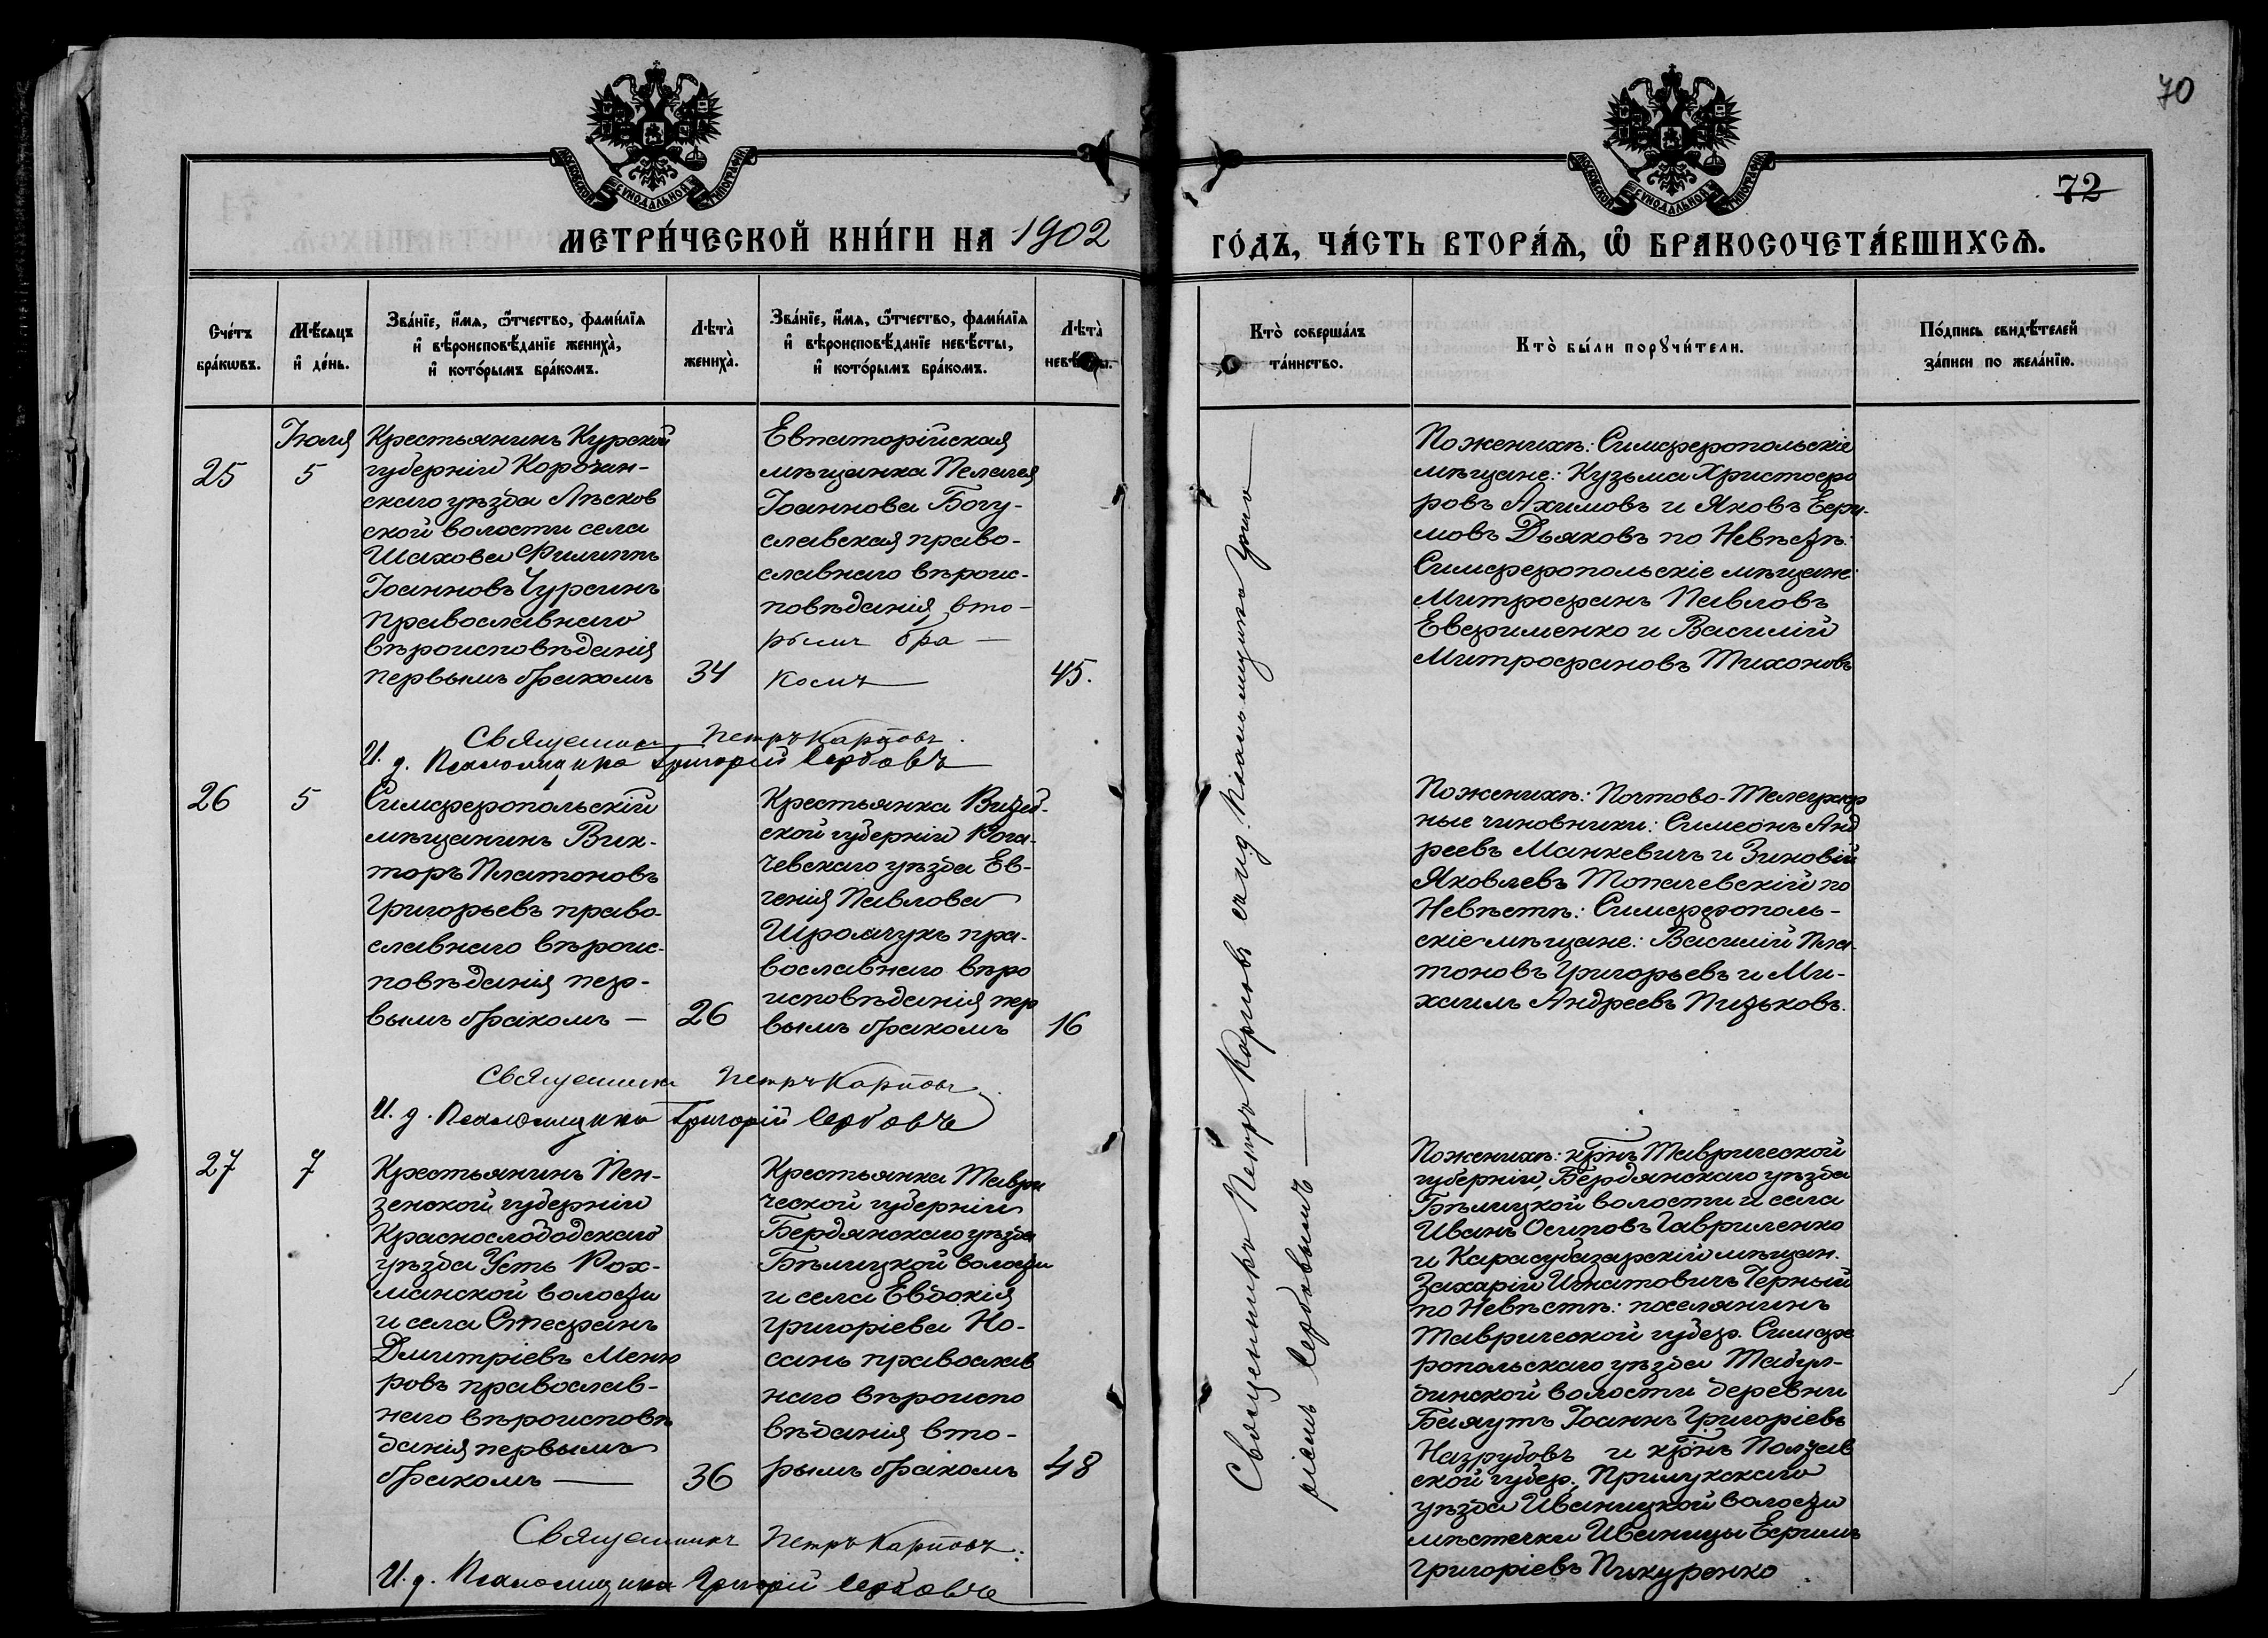 70
72
МОСКОВСКОЙ СѴНОДАЛЬНОЙ ТИПОГРАФІИ
МОСКОВСКОЙ СѴНОДАЛЬНОЙ ТИПОГРАФІИ
МЕТРИ́ЧЕСКОЙ КНИ́ГИ НА 1902
ГО́ДЪ, ЧА́СТЬ ВТОРА́Ѧ, Ѡ҆ БРАКОСОЧЕТА́ВШИХСѦ.
Сче́тъ
бра́кѡвъ.
Мѣ́сяцъ
и҆ де́нь.
Зва́нїе, и҆́мѧ, ѻ҆́тчество, фамѝлїѧ
и҆ вѣроисповѣ́данїе женихà,
и҆ кото́рымъ бра́комъ.
Лѣтà
женихà.
Зва́нїе, и҆́мѧ, ѻ҆́тчество, фамѝлїѧ
и҆ вѣроисповѣ́данїе невѣ́сты,
и҆ кото́рымъ бра́комъ.
Лѣтà
невѣ́сты.
Ктò соверша́лъ
та́инство.
Ктò бы́ли порꙋчи́тели.
По́дпись свидѣ́телей
за́писи по жела́нїю.
25
Іюля
5
Крестьянинъ Курской
губерніи Корочан-
скаго уѣзда Лѣсков
ской волости села
Шахова Филиппъ
Іоанновъ Чурсинъ
православнаго
вѣроисповѣданія
первымъ бракомъ
34
Евпаторійская
мѣщанка Пелагея
Іоаннова Богу-
славская право-
славнаго вѣроис-
повѣданія вто-
рымъ бра-
комъ
45.
Священникъ Петръ Карповъ.
И. д. Псаломщика Григорій Сербовъ
По женихѣ: Симферопольскіе
мѣщане: Кузьма Христофо
ровъ Акимовъ и Яковъ Ефи-
мовъ Дьяковъ по Невѣстѣ:
Симферопольскіе мѣщане:
Митрофанъ Павловъ
Евфименко и Василій
Митрофановъ Тихоновъ
26
5
Симферопольскій
мѣщанинъ Вик-
торъ Платоновъ
Григорьевъ право-
славнаго вѣроис-
повѣданія пер-
вымъ бракомъ —
26
Крестьянка Витеб-
ской губерніи Рога-
чевскаго уѣзда Ев-
генія Павлова
Шромчукъ пра-
вославнаго вѣро
исповѣданія пер
вымъ бракомъ
16
Священникъ Петръ Карповъ
И. д. Псаломщика Григорій Сербовъ
По женихѣ: Почтово-Телеграф
ные чиновники: Симеонъ Анд
реевъ Манкевичъ и Зиновій
Яковлевъ Топачевскій по
Невѣстѣ: Симферополь-
скіе мѣщане: Василій Пла-
тоновъ Григорьевъ и Ми-
хаилъ Андреевъ Пизьковъ.
27
7
Крестьянинъ Пен-
зенской губерніи
Краснослободскаго
уѣзда Усть Рах-
манской волости
и села Стефанъ
Дмитріевъ Меню
ровъ православ-
наго вѣроисповѣ
данія первымъ
бракомъ —
36
Крестьянка Таври
ческой губерніи
Бердянскаго уѣзда
Бѣлицкой волости
и села Евдокія
Григоріева Но-
сань православ
наго вѣроиспо
вѣданія вто-
рымъ бракомъ
48
Священникъ Петръ Карповъ:
И. д. Псаломщика Григорій Сербовъ
По женихѣ: крнъ Таврической
губерніи, Бердянскаго уѣзда
Бѣлицкой волости и села
Иванъ Осиповъ Гавриленко
и Карасубазарскій мѣщан.
Захарій Игнатовичъ Черный
по Невѣстѣ: поселянинъ
Таврической губер. Симфе
ропольскаго уѣзда Табул-
динской волости деревни
Баяутъ Іоаннъ Григоріевъ
Назрубовъ и крнъ Полтав
ской губер. Прилукскаго
уѣзда Иваницкой волости
мѣстечка Иваницы Ефимъ
Григоріевъ Пикуренко
Священникъ Петръ Карповъ съ и. д. Псаломщика Григо
ріемъ Сербовымъ